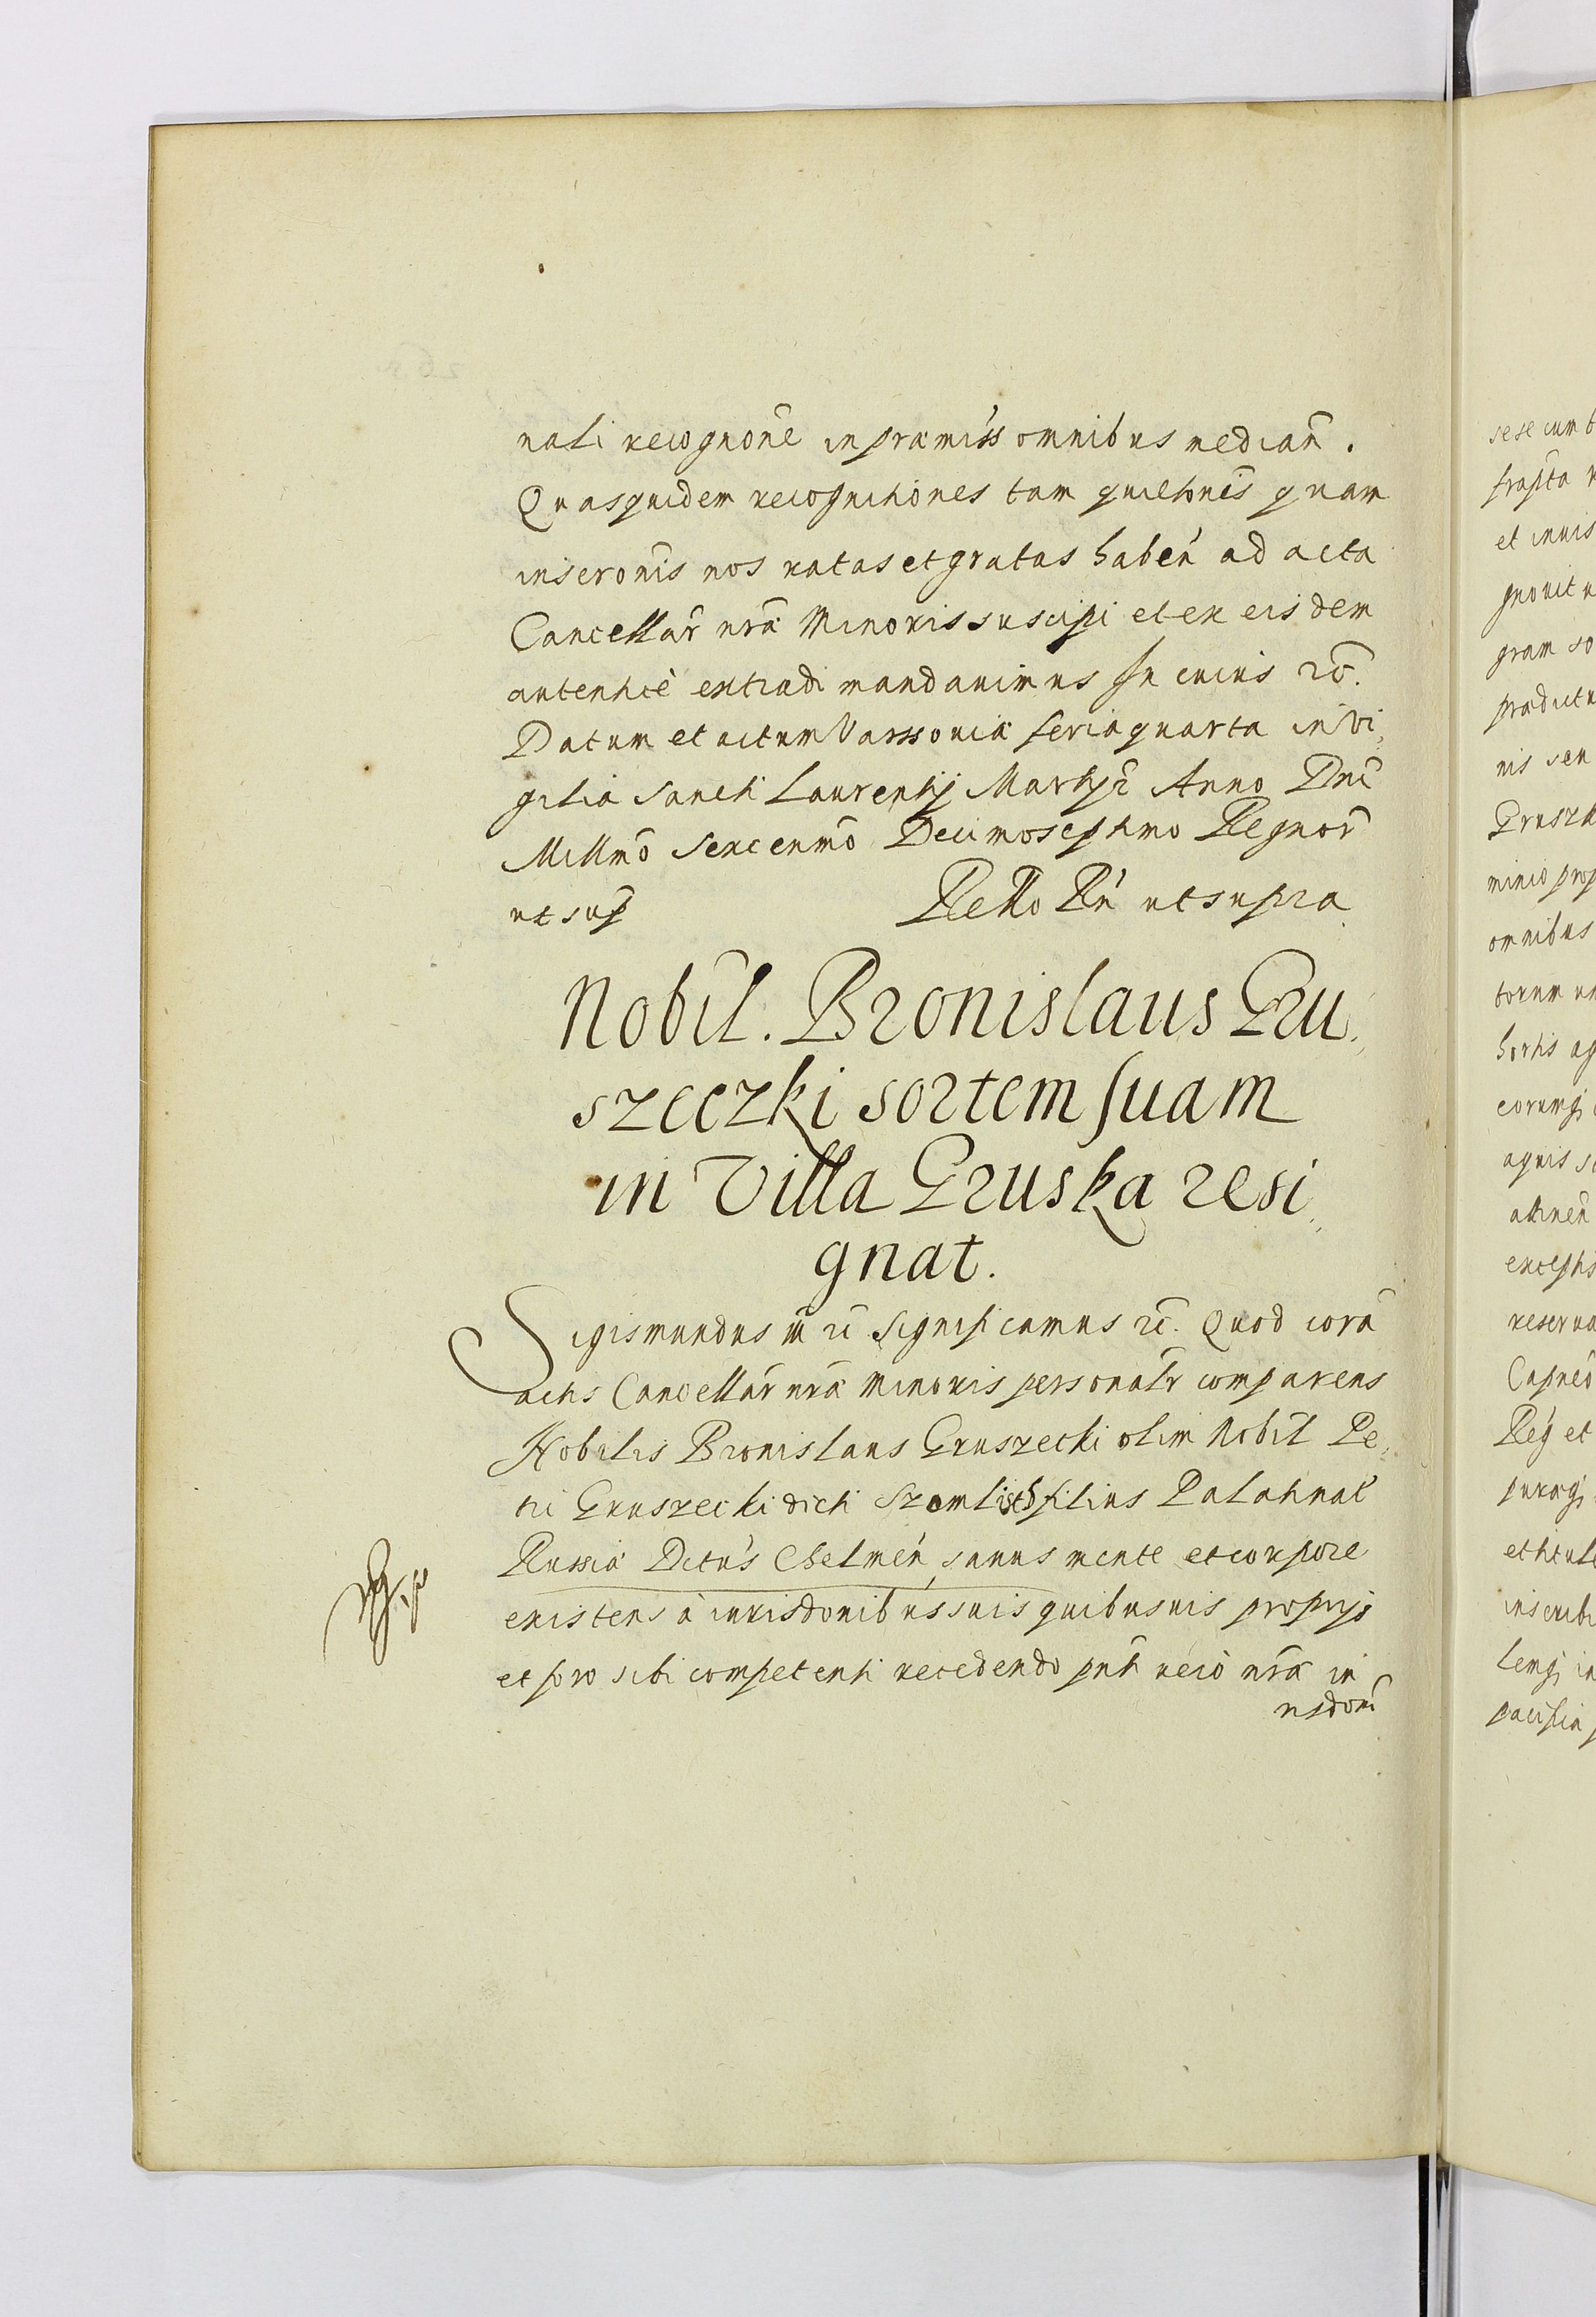 nali recognone in præmiss omnibus median̄.
Quasquidem recognitiones tam quietonis̄ quam
inscronis̄ nos ratas et gratas haben̄ ad acta
Cancellar̄ nræ Minoris suscipi et ex eisdem
autentice extradi mandavimus In cuius rō.
Datum et actum Varssoviæ feria quarta in Vi„
gilia Sancti Laurentij Martyr̄ Anno Dn̄i
Millmō Sexcenmō Decimoseptimo Regnor̄
ut sup̄ Rel̄lo Rn̄ ut supra
Nobil. Bronislaus Gru„
szeczki sortem suam
in Villa Gruska resi„
gnat.
Sigismundus III rc̄ Significamus rc̄. Quod corā
actis Cancellar̄ nræ Minoris personalr̄ comparens
Nobilis Bronislaus Gruszecki olim Nobil̄ Pe„
tri Gruszecki dicti filius Palatinat̄
Russiæ Dctus Chelmen̄, sanus mente et corpore
existens à iurisdonibus suis quibusuis proprijs
et foro sibi competenti recedendo pn̄ti veiò nræ iu
risdoni
sese cum b
frapta
et inuis
gnouit n
gram so
prædictu
nis seu
Gruszk
minio prop
omnibus
torum
hortis ag
eorumq̄
aquis
attinen̄
exceptis
reserua
Capneo
Reg et
puraq̄
et titulo
inscribi
temq̄ in
pacifica